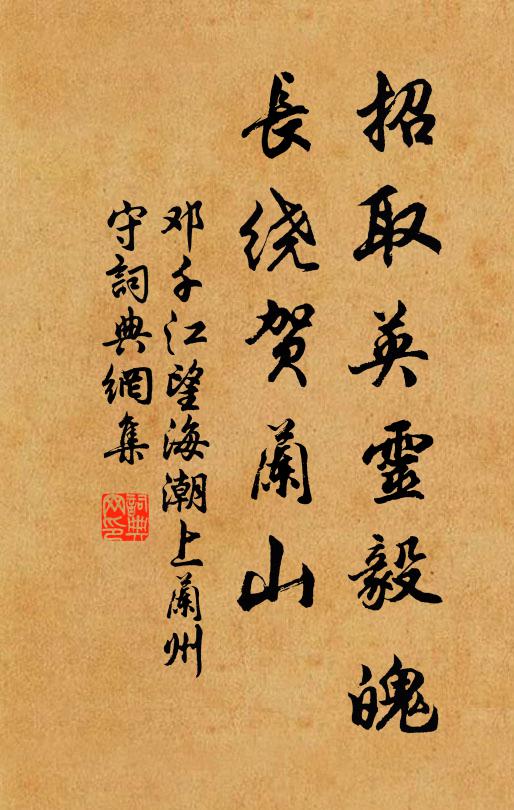 招取英靈毅魄
長绕贺蘭山
邓千江望海潮上蘭州
守詞典網集
詞典网印